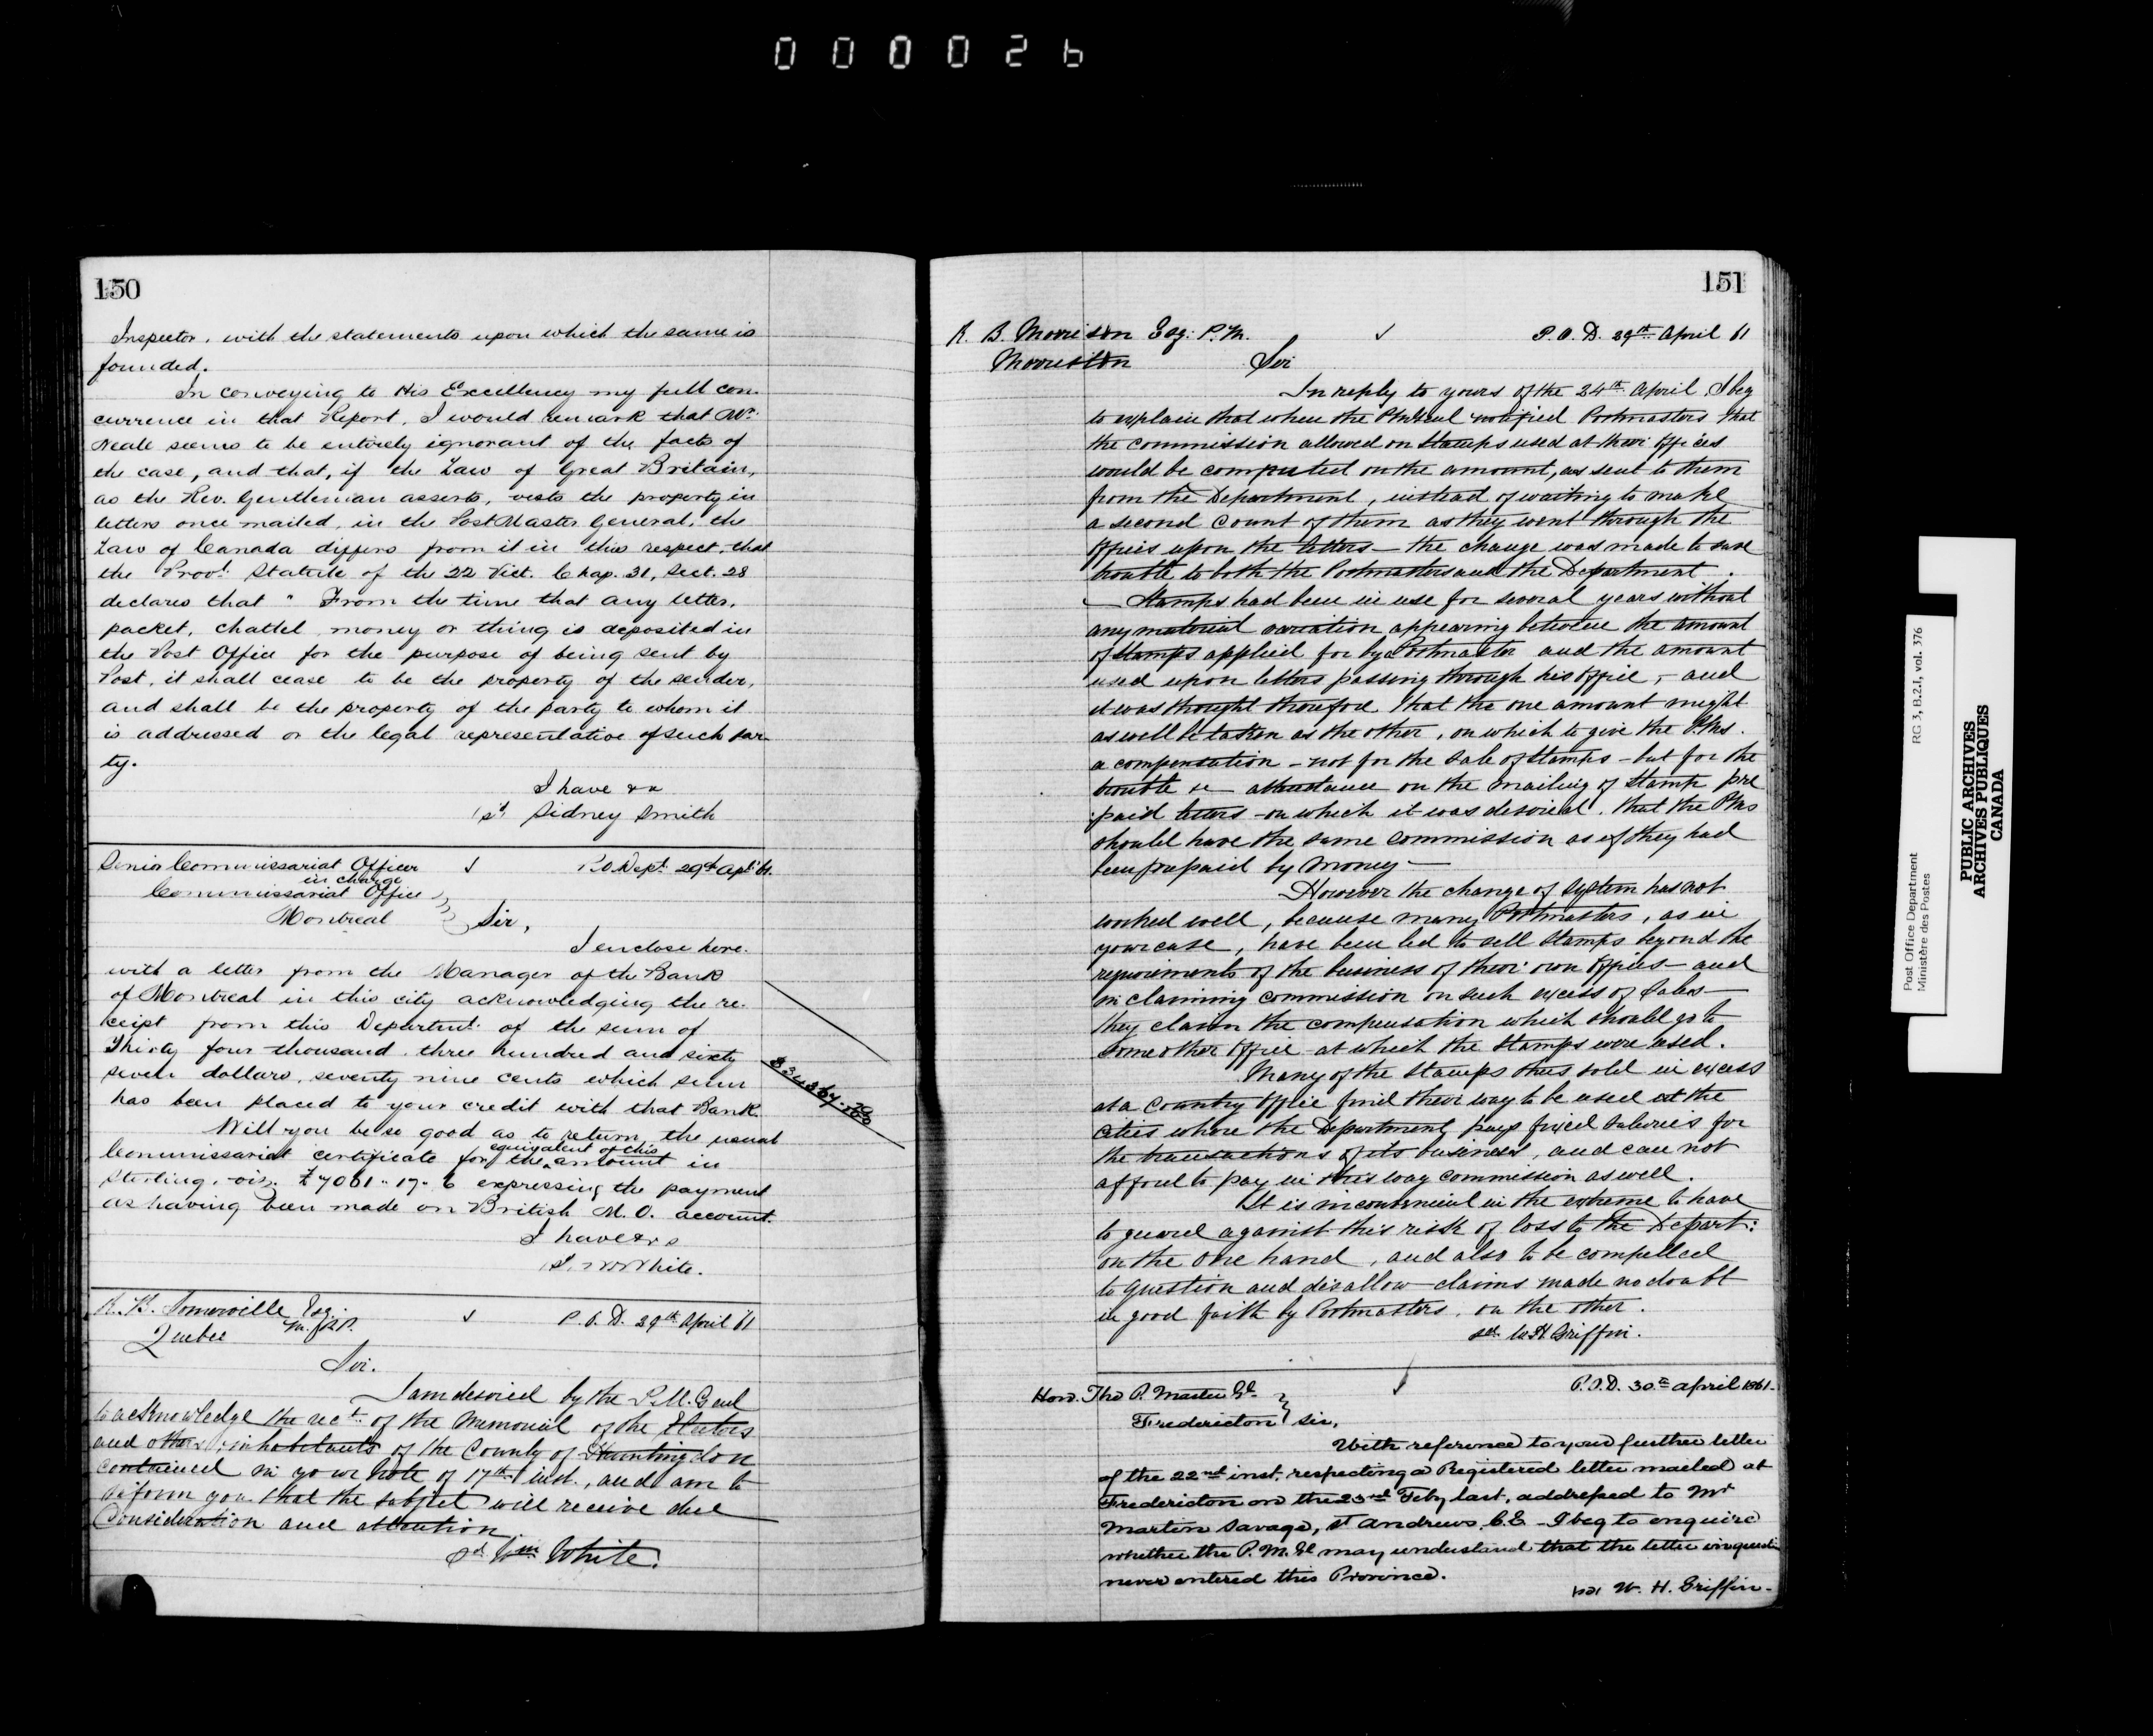 000026
150
Inspector, with the statements upon which the same is
founded.
In conveying to His Excellency my full con-
currence in that Report, I would remark that Mr.
Neale seems to be entirely ignorant of the facts of
the case, and that, if the Law of Great Britain,
as the Rev. Gentleman asserts, vests the property in
letters once mailed, in the Post Master General, the
Law of Canada differs from it in this respect, that
the Provl. Statute of the 22 Vict. Chap. 31, Sect. 28
declares that " From the time that any letter,
packet, chattel, money or thing is deposited in
the Post Office for the purpose of being sent by
Post, it shall cease to be the property of the sender,
and shall be the property of the party to whom it
is addressed or the legal representative of such par-
ty.
I have &c
sd Sidney Smith
Senior Commissariat Officer
in charge
P.O. Dept. 29th Apl. 61.
Commissariat Office
Montreal
Sir,
I enclose here-
with a letter from the Manager of the Bank
of Montreal in this city acknowledging the re-
ceipt from this Departmt. of the sum of
Thirty four thousand three hundred and sixty
seven dollars, seventy nine cents which sum
has been placed to your credit with that Bank.
$34367.79/100
Will you be so good as to return the usual
equivalent of this
Commissariat certificate for the amount in
Sterling, viz. £7061-17-6 expressing the payment
as having been made on British M.O. account.
I have &c
W White.
R. B. Somerville Esq.
M.P.P.
P.O.D. 29th April 61
Quebec
Sir.
I am desired by the P.M. Genl
to acknowledge the rect. of the Memorial of the Electors
and other inhabitants of the County of Huntingdon
contained in your note of 17th inst., and am to
inform you that the subject will receive due
Consideration and attention
sd Wm White.
151
R. B. Morrison Esq. P.M.
P.O.D. 29th April 61
Morriston
Sir
In reply to yours of the 24th April, I beg
to explain that when the PMGenl notified Postmasters that
the commission allowed on Stamps used at their Offices
would be computed on the amount, as sent to them
from the Department, instead of waiting to make
a second count of them as they went through the
Offices upon the letters — the change was made to save
trouble to both the Postmasters and the Department.
— Stamps had been in use for several years without
any material variation appearing between the amount
of Stamps applied for by a Postmaster and the amount
used upon letters passing through his Office, — and
it was thought therefore that the one amount might
as well be taken as the other, on which to give the P.Ms.
a compensation — not for the sale of Stamps — but for the
trouble &c attendance on the mailing of Stamp pre
paid letters — on which it was desired, that the PMs
should have the same commission as if they had
been prepaid by money —
However the change of system has not
worked well, because many Postmasters, as in
your case, have been led to sell Stamps beyond the
requirements of the business of their own Offices — and
in claiming commission on such excess of Sales —
they claim the compensation which should go to
some other Office at which the Stamps were used.
Many of the Stamps thus sold in excess
at a Country Office find their way to be used at the
cities where the Department pays fixed Salaries for
the transactions of its business, and can not
afford to pay in this way commission as well.
It is inconvenient in the extreme to have
to guard against this risk of loss to the Depart:
on the one hand, and also to be compelled
to question and disallow claims made no doubt
in good faith by Postmasters, on the other.
sd. W H Griffin.
P.O.D. 30th April 1861.
Hon. Thos
Fredericton
Sir,
With reference to your further letter
of the 22nd inst. respecting a Registered letter mailed at
Fredericton on the 23rd Feby last, addressed to Mr
Martin Savage, St Andrews, C.E. — I beg to enquire
whether the P.M. Gl may understand that the letter in question
never entered this Province.
sd W. H. Griffin.
Post Office Department
Ministère des Postes
RG 3, B.2.1, vol. 376
PUBLIC ARCHIVES
ARCHIVES PUBLIQUES
CANADA